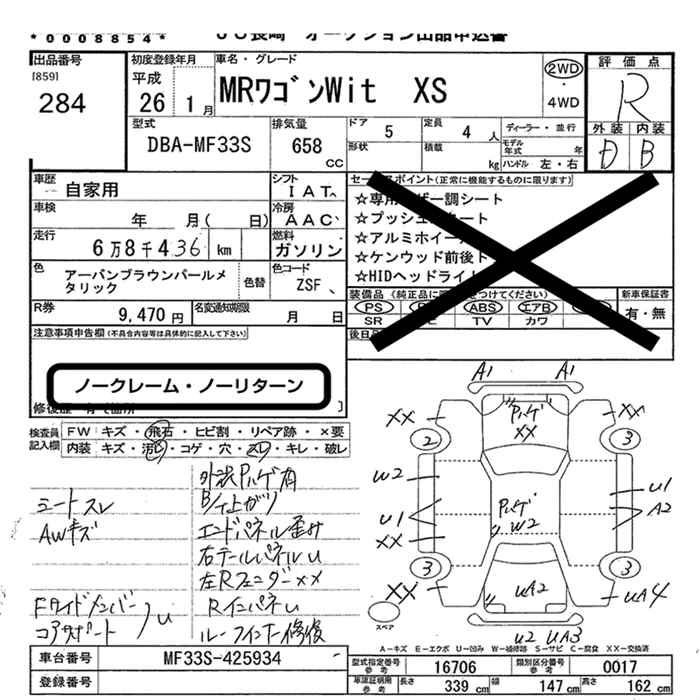 *0008854*
出品番号
[859]
284
初度登録年月
平成
26 1月
車名・グレード
MRワゴンWit XS
2WD
・
4WD
評価点
R
外装 内装
D B
型式
DBA-MF33S
排気量
658
CC
ドア 5
定員 4人
形状
積載 kg
ディーラー・並行
モデル年式 年
ハンドル 左・右
車歴
自家用
シフト
IAT
車検
年 月( 日)
冷房
AAC
走行
6万8千436 km
燃料
ガソリン
色
アーバンブラウンパールメタリック
色替
色コード
ZSF
R券
9,470円
名変通知期限
月 日
セールスポイント(正常に機能するものに限ります)
☆専用
ザー調シート
☆プッシュ
ート
☆アルミホイー
☆ケンウッド前後ド
☆HIDヘッドライト
装備品(純正品に
つけてください)
PS
ABS
エアB
SR
TV カワ
新車保証書
有・無
後日
注意事項申告欄(不具合内容等は具体的に記入して下さい)
ノークレーム・ノーリターン
検査員記入欄
FW キズ・飛石・ヒビ割・リペア跡・×要
内装 キズ・汚レ・コゲ・穴・スレ・キレ・破レ
外装Pハゲ有
B仕上がり
シートスレ
エンドパネル歪み
AWキズ
右テールパネルU
左Rフェンダー××
Fサイドメンバー
コアサポート
U
RインパネU
ルーフインナー修復
A1 A1
Pハゲ
XX
XX XX
2 3
W2
U1
A2
U1
XX
Pハゲ
W2
3 3
XX
UA2
UA4
U2 UA3
スペア
A-キズ E-エクボ U-凹み W-補修跡 S-サビ C-腐食 XX-交換済
車台番号
MF33S-425934
登録番号
型式指定番号
参考
16706
類別区分番号
参考
0017
車認証明用
参考
長さ 339 cm
幅 147 cm
高さ 162 cm